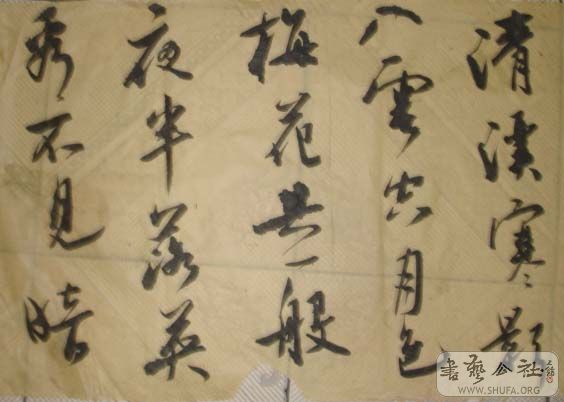 清溪寒影
入雲月色
梅花共一般
夜半落英
看不見暗
書藝公社
WWW.SHUFA.ORG